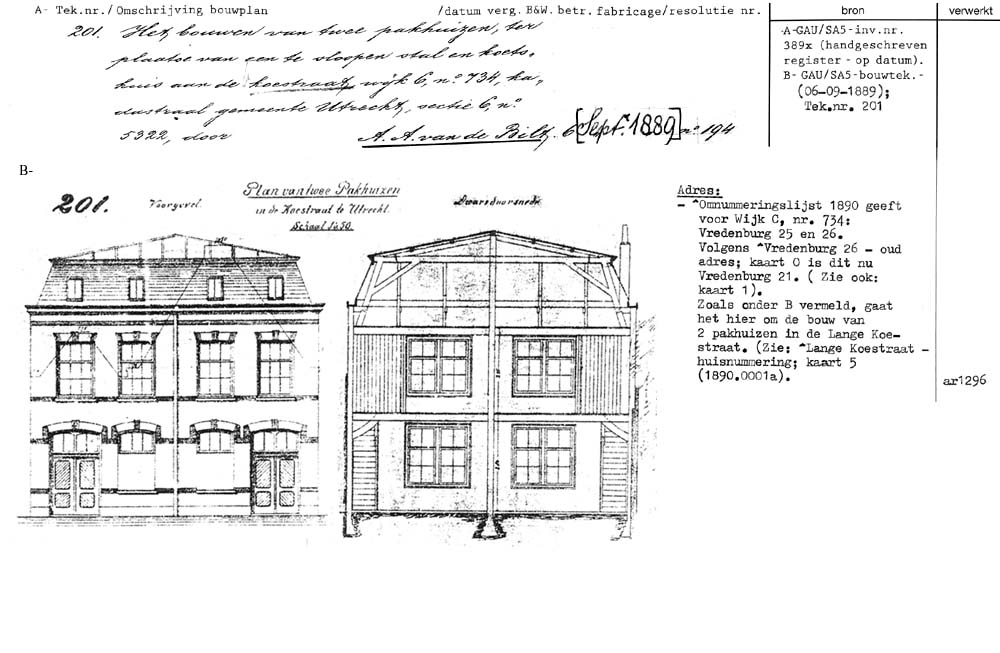 A- Tek.nr./Omschrijving bouwplan /datum verg. B&W. betr. fabricage/resolutie nr. bron verwerkt
201. Het bouwen van twee pakhuizen, ter
plaatse van een te sloopen stal en koets-
huis aan de Koestraat, wijk C, nº 734, ka-
dastraal gemeente Utrecht, sectie C, nº
5322, door A. A. van de Bilt. 6 [Septr. 1889] nº 194
A-GAU/SA5-inv.nr.
389x (handgeschreven
register - op datum).
B- GAU/SA5-bouwtek.-
(06-09-1889);
Tek.nr. 201
B-
201.
Voorgevel.
Plan van twee Pakhuizen
in de Koestraat te Utrecht.
Schaal 1 à 50.
Dwarsdoorsnede
Adres:
- ^Omnummeringslijst 1890 geeft
voor Wijk C, nr. 734:
Vredenburg 25 en 26.
Volgens ^Vredenburg 26 - oud
adres; kaart 0 is dit nu
Vredenburg 21. ( Zie ook:
kaart 1).
Zoals onder B vermeld, gaat
het hier om de bouw van
2 pakhuizen in de Lange Koe-
straat. (Zie: ^Lange Koestraat -
huisnummering; kaart 5
(1890.0001a).
ar1296